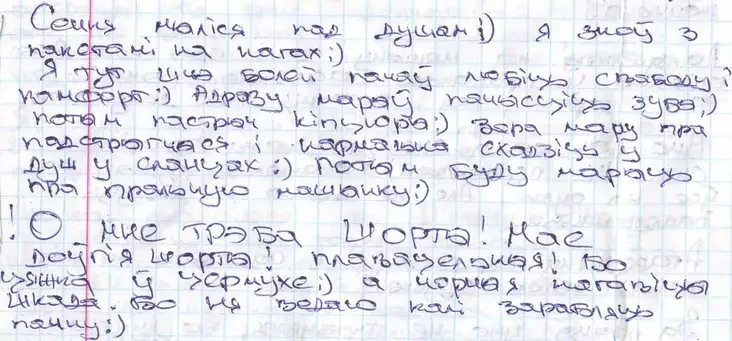 Сення мыліся пад душам :) Я зноў з
пакетамі на нагах :)
Я тут шчэ болей пачаў любіць свабоду і
камфорт :) Адразу марыў пачысціць зубы :)
Потым пастрыч кіпцюры :) Зара мару пра
падстрыгчыся і нармальна схадзіць у
душ у сланцах :) Потым буду марыць
пра пральную машынку :)
! О мне трэба шорты! Мае
доўгія шорты! плавацельныя! Бо
цяжка ў чермухе :) а чорныя нагавіцы
шкада. Бо ня ведаю калі зараблю
пачку :)